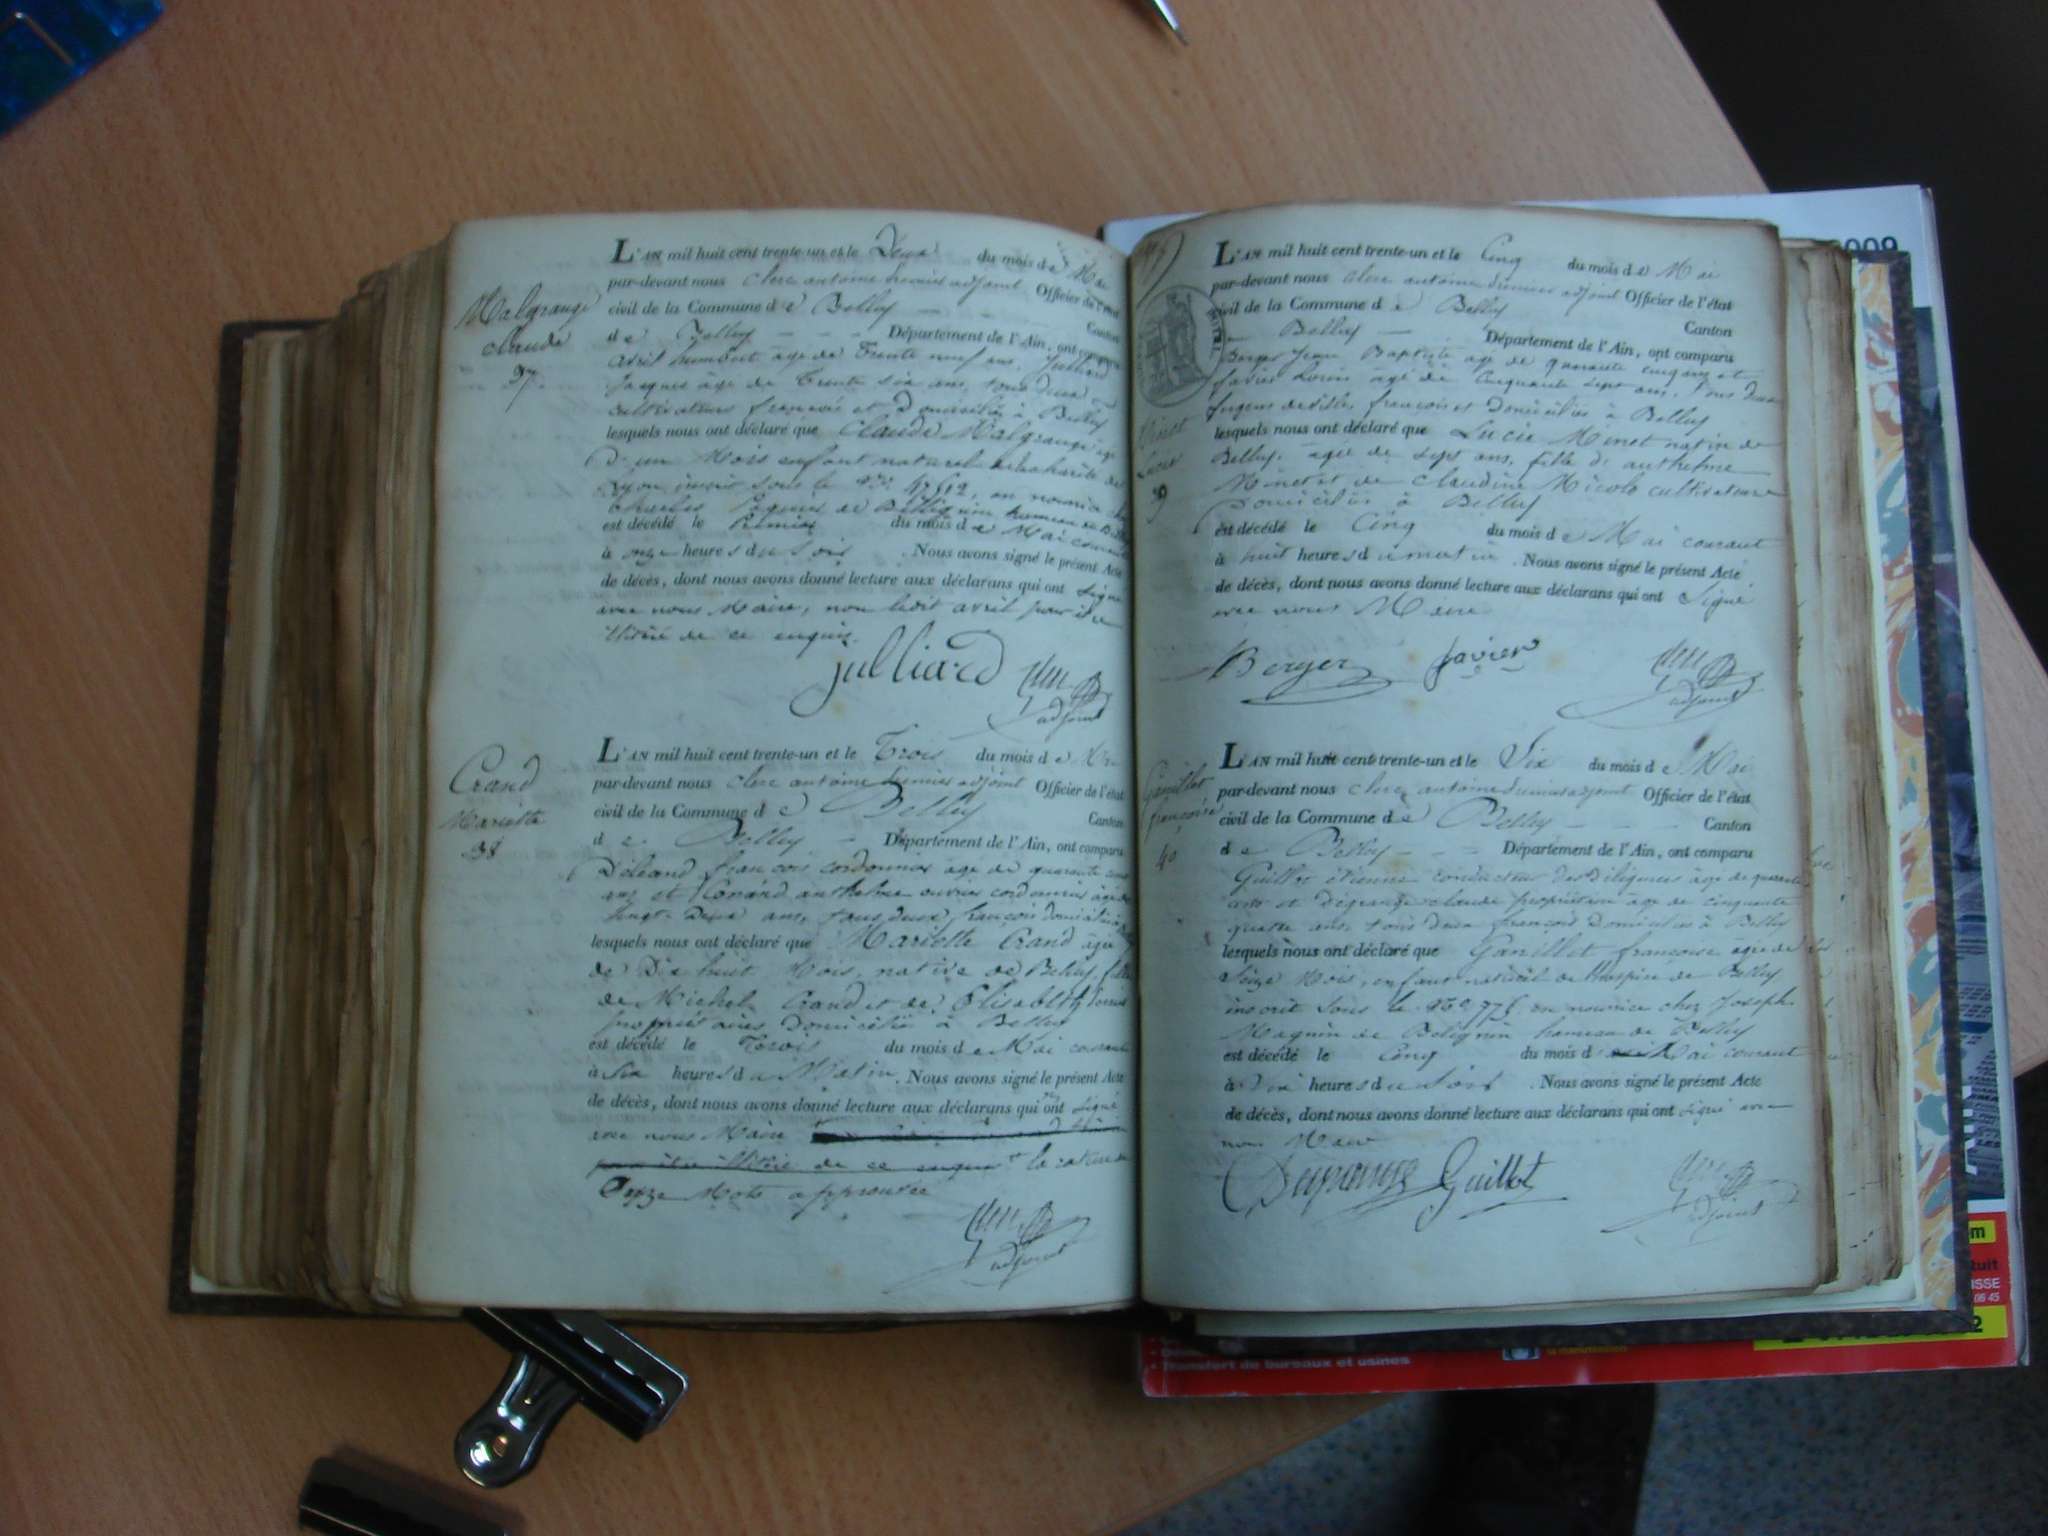 Malgrange
claude
37.
L'AN mil huit cent trente-un et le Deux du mois de Mai
par-devant nous clerc antoine premier adjoint Officier de l'état
civil de la Commune de Belley Canton
de Belley Département de l'Ain, ont comparu
avril humbert âgé de Trente neuf ans, Julliard
Jacques âgé de Trente six ans, tous deux
cultivateurs français et domiciliés à Belley
lesquels nous ont déclaré que Claude Malgrange âgé
d'un Mois enfant naturel de la charité de
Lyon inscrit sous le N° 47612, en nourrice chez
Charles de Bellignin hameau de Belley
est décédé le Premier du mois de Mai courant
à onze heures du soir . Nous avons signé le présent Acte
de décès, dont nous avons donné lecture aux déclarans qui ont signé
avec nous Maire, non ledit avril pour être
illitéré de ce enquis.
julliard
adjoint
Crand
Mariette
38
L'AN mil huit cent trente-un et le Trois du mois de Mai
par-devant nous clerc antoine premier adjoint Officier de l'état
civil de la Commune de Belley Canton
de Belley Département de l'Ain, ont comparu
françois cordonnier âgé de quarante
ans et anthelme ouvrier cordonnier âgé de
vingt Deux ans, tous deux français domiciliés
lesquels nous ont déclaré que Mariette Crand âgée
de Dix huit Mois, native de Belley, fille
de Michel Crand et de Elisabeth
propriétaires Domiciliés à Belley
est décédé le Trois du mois de Mai courant
à Six heures du Matin . Nous avons signé le présent Acte
de décès, dont nous avons donné lecture aux déclarans qui ont signé
avec nous Maire
pour être illitéré de ce enquis la rature de
onze Mots approuvée
adjoint
Minet
Lucie
39
L'AN mil huit cent trente-un et le Cinq du mois de Mai
par-devant nous clerc antoine premier adjoint Officier de l'état
civil de la Commune de Belley Canton
Belley Département de l'Ain, ont comparu
Berger Jean Baptiste âgé de quarante cinq ans et
Javier Louis âgé de Cinquante sept ans, tous deux
Sergens de ville, français et Domiciliés à Belley
lesquels nous ont déclaré que Lucie Minet native de
Belley, âgée de sept ans, fille d' anthelme
Minet et de Claudine Nicolo cultivateurs
Domiciliés à Belley
est décédé le Cinq du mois de Mai courant
à huit heures du matin . Nous avons signé le présent Acte
de décès, dont nous avons donné lecture aux déclarans qui ont Signé
avec nous Maire
Berger Javier
adjoint
Ganillet
françoise
40
L'AN mil huit cent trente-un et le Six du mois de Mai
par-devant nous clerc antoine premier adjoint Officier de l'état
civil de la Commune de Belley Canton
de Belley Département de l'Ain, ont comparu
Guillot étienne conducteur des Diligences âgé de quarante
ans et Dégrange claude propriétaire âgé de cinquante
quatre ans, tous deux français Domiciliés à Belley
lesquels nous ont déclaré que Ganillet françoise âgée de
Seize Mois, enfant naturel de l'hospice de Belley
inscrit sous le N° 775 en nourrice chez Joseph
Magnin de Belignin hameau de Belley
est décédé le Cinq du mois de Mai courant
à Dix heures du soir . Nous avons signé le présent Acte
de décès, dont nous avons donné lecture aux déclarans qui ont signé avec
nous Maire
Guillot
adjoint
• Transfort de bureaux et usines